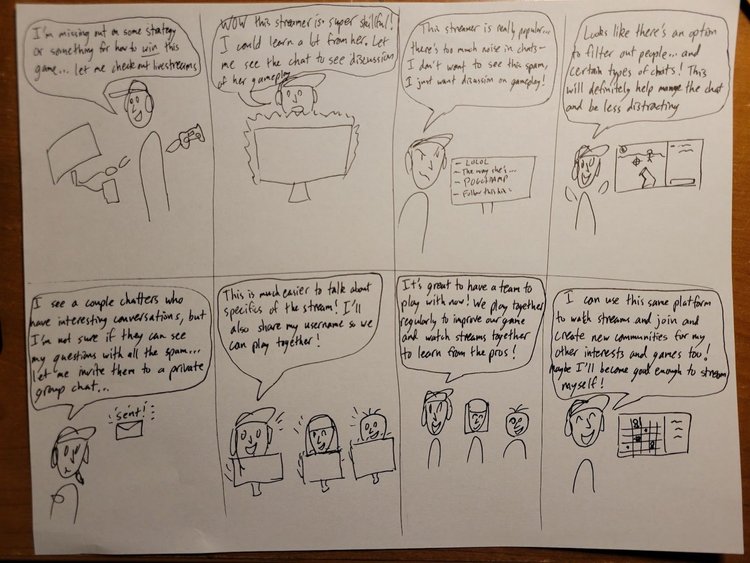 I'm missing out on some strategy
or something for how to win this
game... let me check out livestreams
WOW this streamer is super skillful!
I could learn a lot from her. Let
me see the chat to see discussion
of her gameplay
This streamer is really popular...
there's too much noise in chats-
I don't want to see this spam,
I just want discussion on gameplay!
- LOLOL
- The way she's...
- POGCHAMP
- Follow this
Looks like there's an option
to filter out people... and
certain types of chats! This
will definitely help manage the chat
and be less distracting
I see a couple chatters who
have interesting conversations, but
I'm not sure if they can see
my questions with all the spam...
let me invite them to a private
group chat...
sent!
This is much easier to talk about
specifics of the stream! I'll
also share my username so we
can play together!
It's great to have a team to
play with now! We play together
regularly to improve our game
and watch streams together
to learn from the pros!
I can use this same platform
to watch streams and join and
create new communities for my
other interests and games too!
Maybe I'll become good enough to stream
myself!